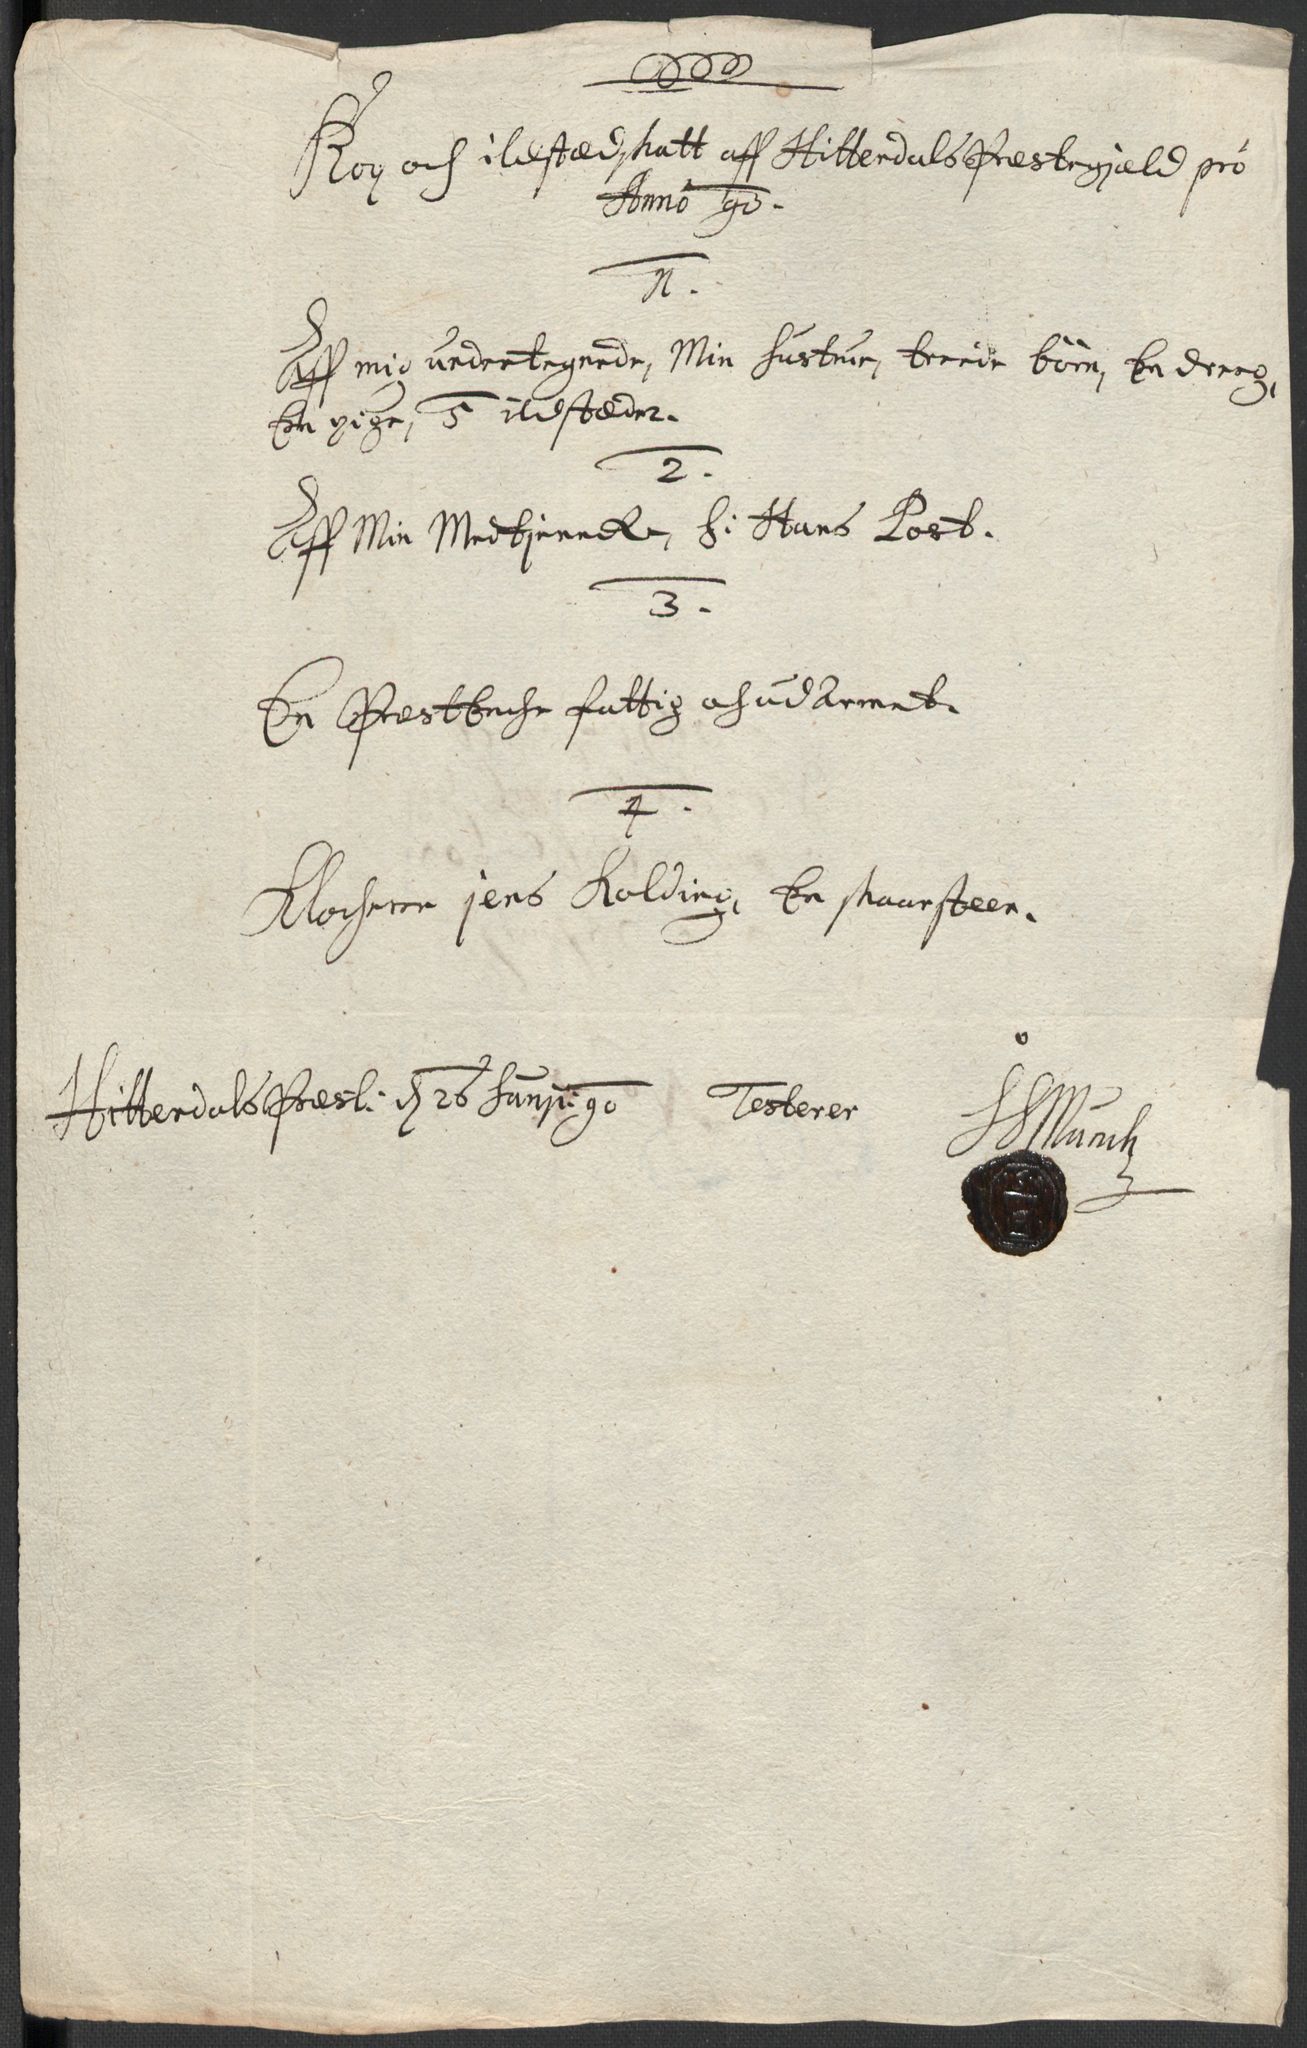 Kop och ildstæd skatt aff Hitterdals Præstegjæld pro
Anno 90.
1.
Aff mig undertegnede, Min hustrue, treide börn, En dreng,
En pige, 5 ildstæder.
2.
Aff Min Medtjenere, Hr Hans Post.
3.
En Præst Enche fattig och udarmet.
4.
Klocheren jens Kolding, En skaarsteen.
Hitterdals Præstg: d 26 Junij: 90 Testerer
Munch